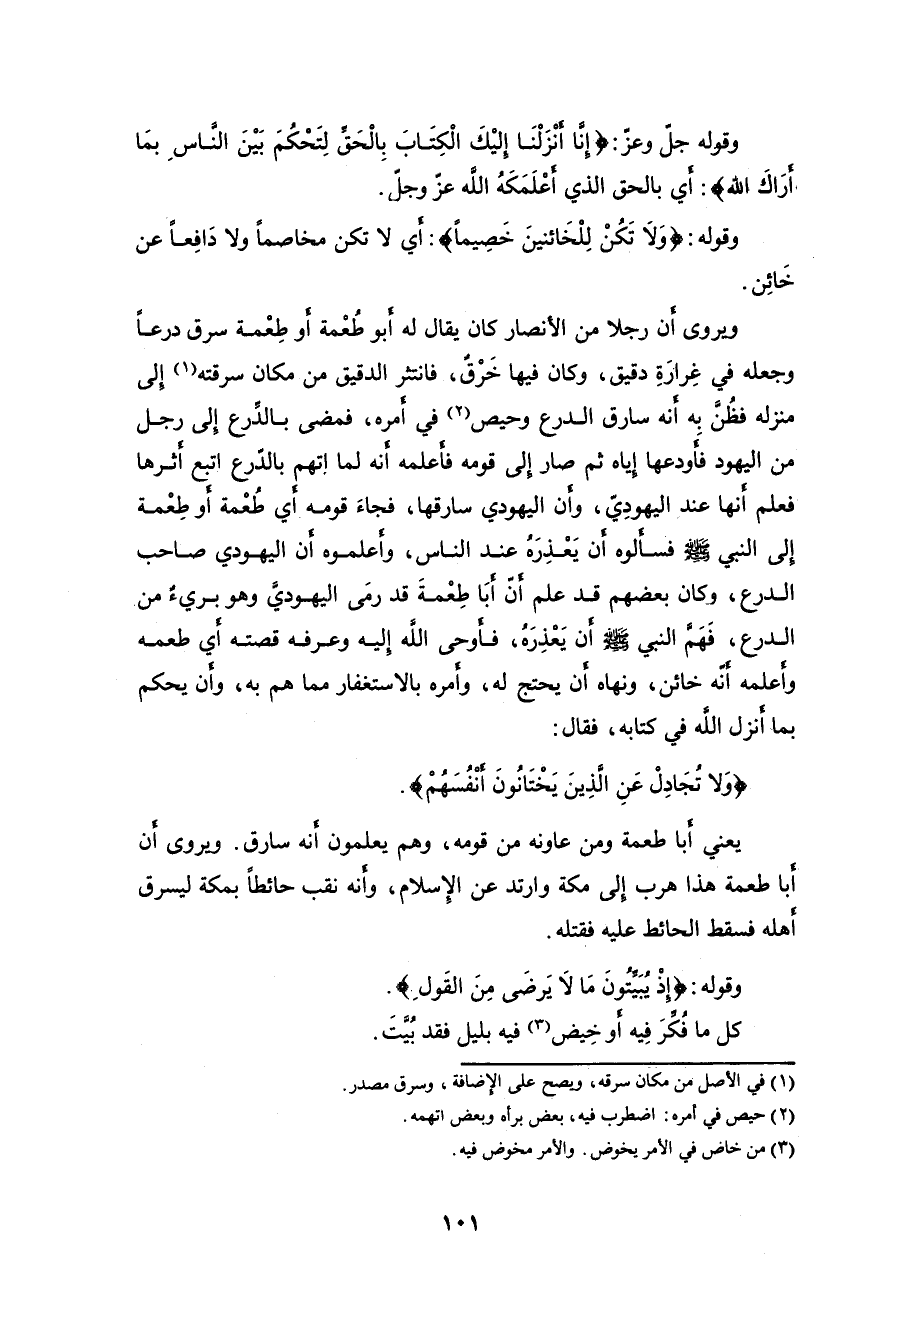 وقوله جلّ وعزّ: ﴿إِنَّا أَنْزَلْنَا إِلَيْكَ الْكِتَابَ بِالْحَقِّ لِتَحْكُمَ بَيْنَ النَّاسِ بِمَا
أَرَاكَ الله﴾: أَي بالحق الذي أَعْلَمَكَهُ اللَّه عزّ وجلّ.
وقوله: ﴿وَلَا تَكُنْ لِلْخَائنينَ خَصِيماً﴾: أَي لا تكن مخاصماً ولا دَافِعاً عن
خَائِن.
ويروى أَن رجلا من الأنصار كان يقال له أَبو طُعْمة أَو طِعْمة سرق درعاً
وجعله في غِرارَةِ دقيق، وكان فيها خَرْقٌ، فانتثر الدقيق من مكان سرقته(١) إِلى
منزله فظُنَّ بِه أَنه سارق الدرع وحيص(٢) في أَمره، فمضى بالدِّرع إِلى رجل
من اليهود فأَودعها إِياه ثم صار إِلى قومه فأَعلمه أَنه لما اِتهم بالدّرع اتبع أَثرها
فعلم أَنها عند اليهودِيّ، وأَن اليهودي سارقها، فجاءَ قومه أَي طُعْمة أَو طِعْمة
إِلى النبي ﷺ فسأَلوه أَن يَعْذِرَهُ عند الناس، وأَعلموه أَن اليهودي صاحب
الدرع، وكان بعضهم قد علم أَنّ أَبَا طِعْمةَ قد رمَى اليهوديَّ وهو بريءٌ من
الدرع، فَهَمَّ النبي ﷺ أَن يَعْذِرَهُ، فأَوحى اللَّه إِليه وعرفه قصته أَي طعمه
وأَعلمه أَنّه خائن، ونهاه أَن يحتج له، وأَمره بالاستغفار مما هم به، وأَن يحكم
بما أَنزل اللَّه في كتابه، فقال:
﴿وَلا تُجَادِلْ عَنِ الَّذِينَ يَخْتَانُونَ أَنْفُسَهُمْ﴾.
يعني أَبا طعمة ومن عاونه من قومه، وهم يعلمون أَنه سارق. ويروى أَن
أَبا طعمة هذا هرب إِلى مكة وارتد عن الإِسلام، وأَنه نقب حائطاً بمكة ليسرق
أَهله فسقط الحائط عليه فقتله.
وقوله: ﴿إِذْ يُبَيِّتُونَ مَا لَا يَرضَى مِنَ القَولِ﴾.
كل ما فُكِّرَ فِيه أَو خِيض(٣) فيه بليل فقد بُيَّتَ.
(١) في الأصل من مكان سرقه، ويصح على الإِضافة، وسرق مصدر.
(٢) حيص في أمره: اضطرب فيه، بعض برأه وبعض اتهمه.
(٣) من خاض في الأمر يخوض. والأمر مخوض فيه.
١٠١